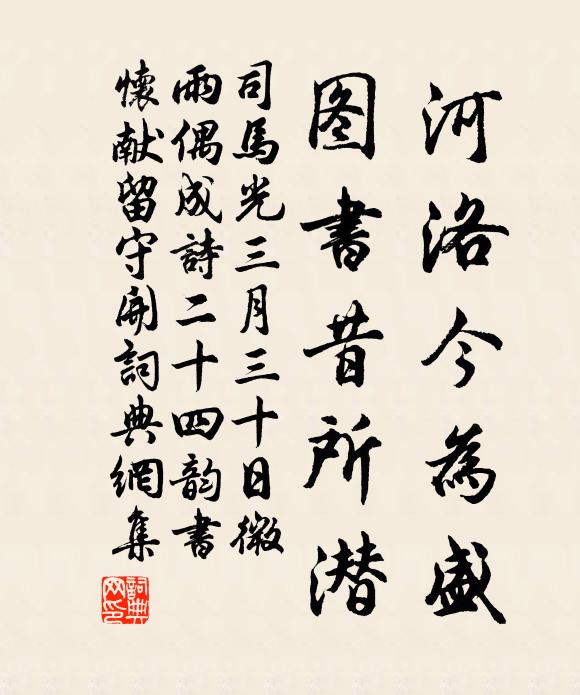 河洛今為盛
图書昔所潜
司馬光三月三十日微
雨偶成詩二十四韵書
懷献留守開詞典網集
詞典網印